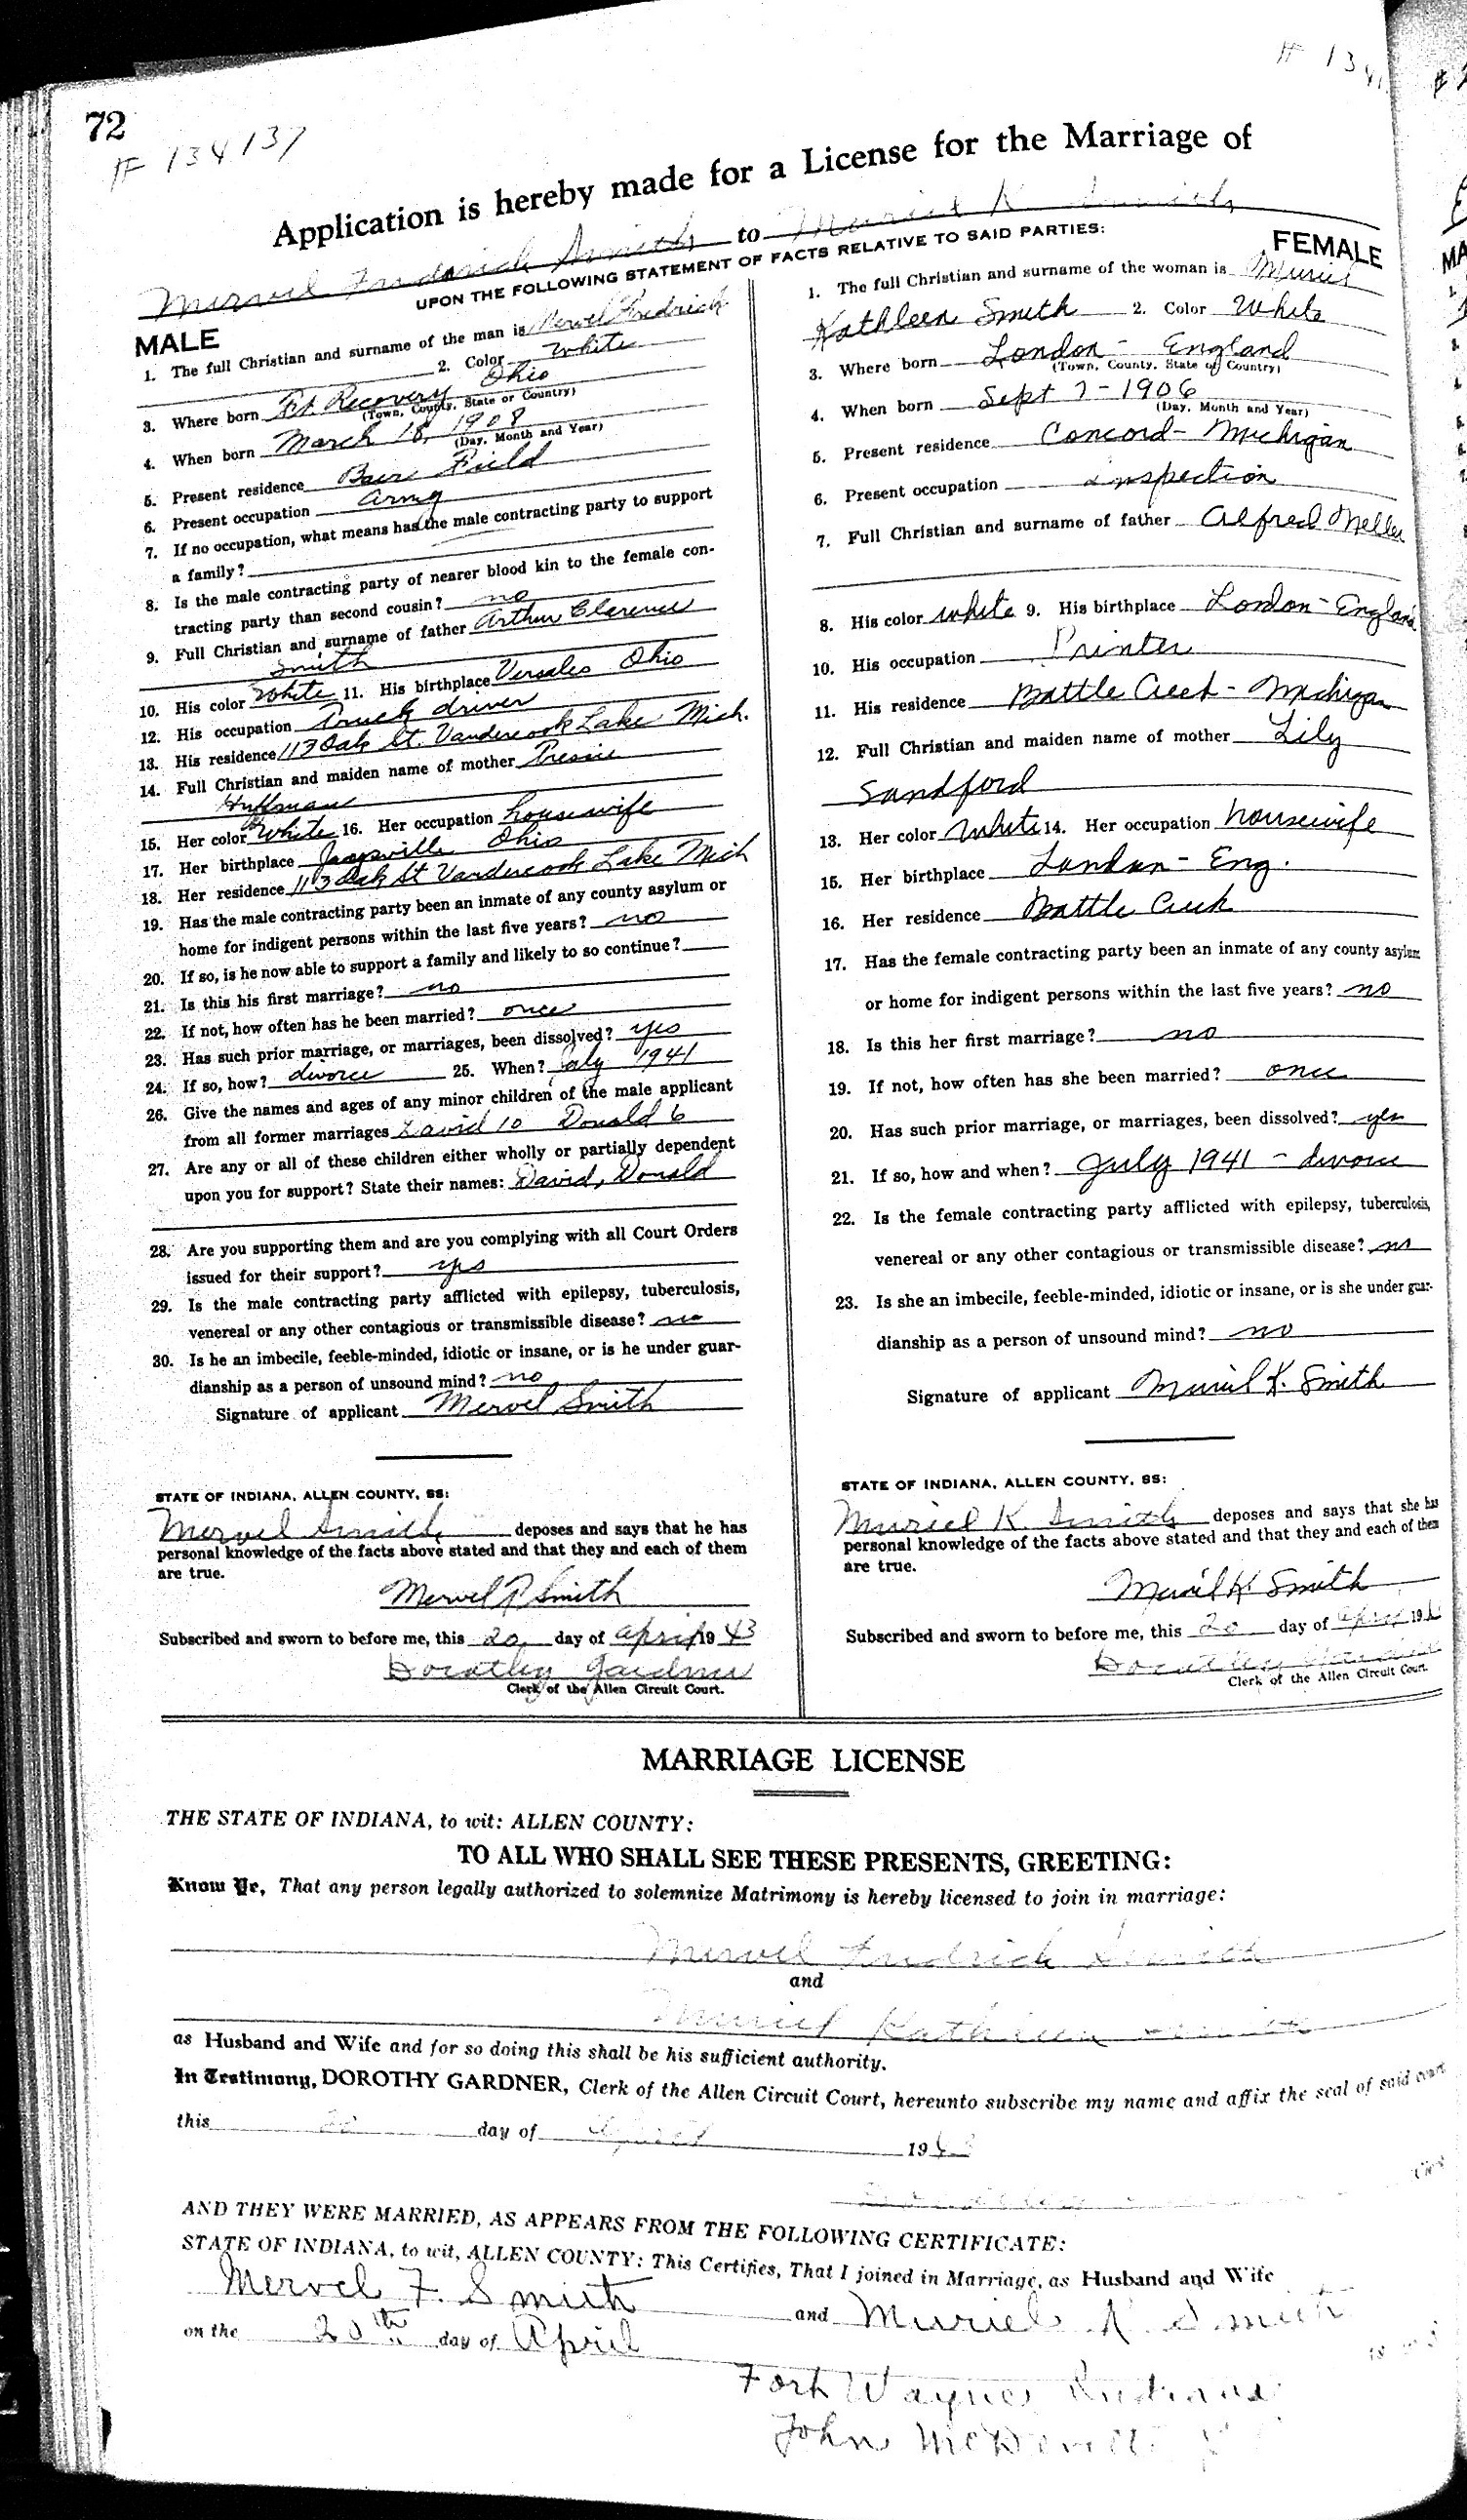 72
# 134137
Application is hereby made for a License for the Marriage of
Mervel Fredrick Smith to Muriel K Smith
UPON THE FOLLOWING STATEMENT OF FACTS RELATIVE TO SAID PARTIES:
MALE
1. The full Christian and surname of the man is Mervel Fredrick
2. Color White
3. Where born Ft. Recovery Ohio
(Town, County, State or Country)
4. When born March 18, 1908
(Day, Month and Year)
5. Present residence Baer Field
6. Present occupation Army
7. If no occupation, what means has the male contracting party to support
a family?
8. Is the male contracting party of nearer blood kin to the female con-
tracting party than second cousin? no
9. Full Christian and surname of father Arthur Clarence
Smith
10. His color White 11. His birthplace Versales Ohio
12. His occupation Truck driver
13. His residence 113 Oak St. Vandercook Lake Mich.
14. Full Christian and maiden name of mother
Huffman
15. Her color White 16. Her occupation housewife
17. Her birthplace Ohio
18. Her residence 113 Oak St Vandercook Lake Mich
19. Has the male contracting party been an inmate of any county asylum or
home for indigent persons within the last five years? no
20. If so, is he now able to support a family and likely to so continue?
21. Is this his first marriage? no
22. If not, how often has he been married? once
23. Has such prior marriage, or marriages, been dissolved? yes
24. If so, how? divorce 25. When? July 1941
26. Give the names and ages of any minor children of the male applicant
from all former marriages David 10 Donald 6
27. Are any or all of these children either wholly or partially dependent
upon you for support? State their names: David, Donald
28. Are you supporting them and are you complying with all Court Orders
issued for their support? yes
29. Is the male contracting party afflicted with epilepsy, tuberculosis,
venereal or any other contagious or transmissible disease? no
30. Is he an imbecile, feeble-minded, idiotic or insane, or is he under guar-
dianship as a person of unsound mind? no
Signature of applicant Mervel Smith
STATE OF INDIANA, ALLEN COUNTY, SS:
Mervel Smith deposes and says that he has
personal knowledge of the facts above stated and that they and each of them
are true.
Mervel F Smith
Subscribed and sworn to before me, this 20 day of April 1943
Dorothy Gardner
Clerk of the Allen Circuit Court.
FEMALE
1. The full Christian and surname of the woman is Muriel
Kathleen Smith 2. Color White
3. Where born London - England
(Town, County, State of Country)
4. When born Sept 7 - 1906
(Day, Month and Year)
5. Present residence Concord - Michigan
6. Present occupation inspection
7. Full Christian and surname of father Alfred
8. His color white 9. His birthplace London - England
10. His occupation Printer
11. His residence Battle Creek - Michigan
12. Full Christian and maiden name of mother Lily
Sandford
13. Her color White 14. Her occupation housewife
15. Her birthplace London - Eng.
16. Her residence Battle Creek
17. Has the female contracting party been an inmate of any county asylum
or home for indigent persons within the last five years? no
18. Is this her first marriage? no
19. If not, how often has she been married? once
20. Has such prior marriage, or marriages, been dissolved? yes
21. If so, how and when? July 1941 - divorce
22. Is the female contracting party afflicted with epilepsy, tuberculosis,
venereal or any other contagious or transmissible disease? no
23. Is she an imbecile, feeble-minded, idiotic or insane, or is she under guar-
dianship as a person of unsound mind? no
Signature of applicant Muriel K. Smith
STATE OF INDIANA, ALLEN COUNTY, SS:
Muriel K. Smith deposes and says that she has
personal knowledge of the facts above stated and that they and each of them
are true.
Muriel K Smith
Subscribed and sworn to before me, this 20 day of April 19
Dorothy Gardner
Clerk of the Allen Circuit Court.
MARRIAGE LICENSE
THE STATE OF INDIANA, to wit: ALLEN COUNTY:
TO ALL WHO SHALL SEE THESE PRESENTS, GREETING:
Know Ye, That any person legally authorized to solemnize Matrimony is hereby licensed to join in marriage:
Mervel Fredrick Smith
and
Muriel Kathleen Smith
as Husband and Wife and for so doing this shall be his sufficient authority.
In Testimony, DOROTHY GARDNER, Clerk of the Allen Circuit Court, hereunto subscribe my name and affix the seal of said court
this 20 day of April 1943
AND THEY WERE MARRIED, AS APPEARS FROM THE FOLLOWING CERTIFICATE:
STATE OF INDIANA, to wit, ALLEN COUNTY: This Certifies, That I joined in Marriage, as Husband and Wife
Mervel F. Smith and Muriel K Smith
on the 20th day of April
Fort Wayne Indiana
John